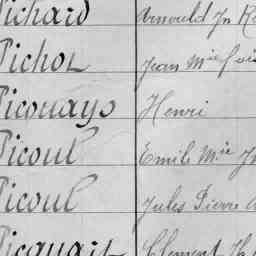 Pichard Arnould Jn
Pichot Jean Mie
Picouays Henri
Picoul Emile Mie
Picoul Jules Pierre
Picquait Clement Th